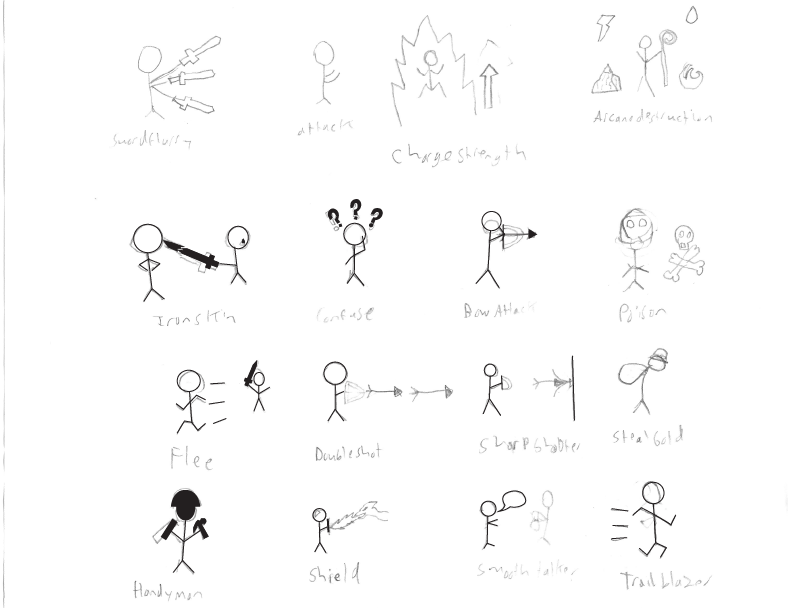 Swordflurry
attack
Charge Strength
Arcane destruction
? ? ?
Iron Skin
Confuse
Bow Attack
Poison
Flee
Doubleshot
Sharp Shooter
Steal Gold
Handyman
Shield
Smooth talker
Trail blazer